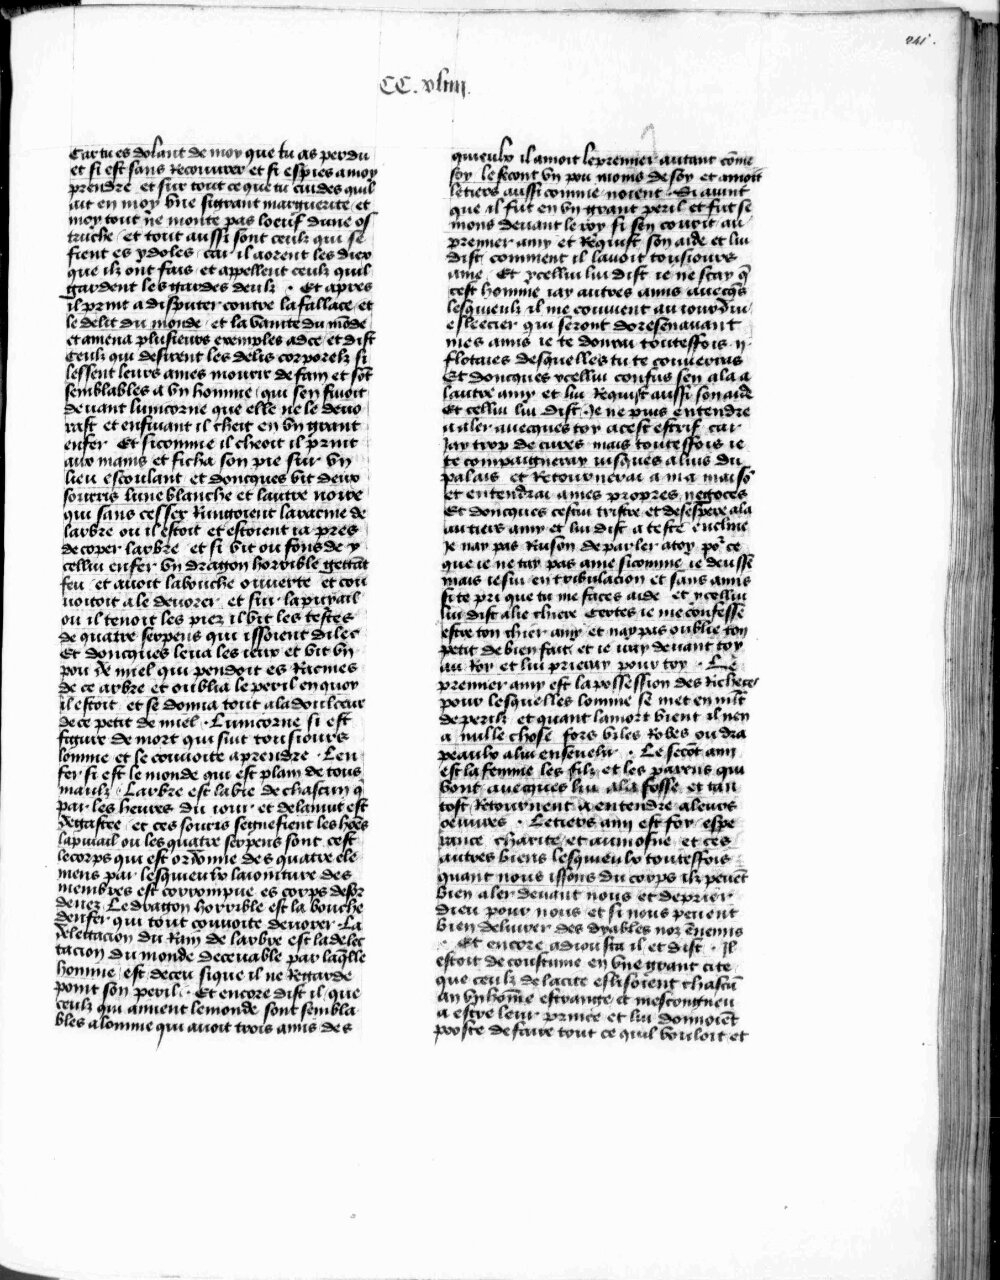 241.
CC. xliiii.
Car tu es dolant de moy que tu as perdu
et si est sans recouvrer et si espies a moy
prendre et sur tout ce que tu cuides quil
ait en moy vne si grant marguerite et
moy tout ne monte pas loeuf dune os
truche et tout aussi sont ceulx qui se
fient es ydoles car il aorent les diex
que ilz ont fais et appellent ceulx quil
gardent les gardes deulx . Et apres
il print a disputer contre la fallace et
le delit du monde et la vanite du mōde
et amena plusieurs exemples a ce et dist
Ceulx qui desirent les delis corporelz si
lessent leurs ames mourir de fain et sōt
semblables a vn homme qui sen fuioit
deuant lunicorne que elle ne le deuo
rast et en fuiant il cheit en vn grant
enfer Et si comme il cheoit il print
aux mains et ficha son pie sur vn
lieu escoulant et doncques vit deux
souris lune blanche et lautre noire
qui sans cesser rungoient la racine de
larbre ou il estoit et estoient ia pres
de coper larbre et si vit ou fons de y
cellui enfer vn dragon horrible gettāt
feu et auoit la bouche ouuerte et cou
uoitoit a le deuorer et sur la
ou il tenoit les piez il vit les testes
de quatre serpens qui issoient dilec
Et doncques leua les ieux et vit vn
pou de miel qui pendoit es raimes
de ce arbre et oublia le peril en quoy
il estoit et se donna tout a la doulceur
de ce petit de miel . Lunicorne si est
figure de mort qui siut tousiours
lomme et le couuoite a prendre . Len
fer si est le monde qui est plain de tous
maulx . Larbre est la vie de chascun q̄
par les heures du iour et de la nuit est
degastee et ces souris segnefient les hoēs
ou les quatre serpens sont cest
le corps qui est ordōnne des quatre ele
mens par lesquieulx la ioniture des
membres est corrompue es corps desor
denez Le dragon horrible est la bouche
denfer qui tout couuoite deuorer . La
delettacion du Raim de larbre est la delec
tacion du monde deceuable par laq̄lle
homme est deceu si que il ne Regarde
point son peril . Et encore dist il que
ceulx qui aiment le monde sont sembla
bles a lomme qui auoit trois amis des
quieulx il amoit le premier autant cōme
soy le secont vn pou moins de soy et amoit
le tiers aussi comme noient . Si auint
que il fut en vn grant peril et fut se
mons deuant le roy si sen courut au
premier amy et Requist son aide et lui
dist comment il lauoit tousiours
ame Et ycellui lui dist ie ne scay q̄
cest homme iay autres amis auecq̄s
lesquieulx il me conuient au iourduy
esleecier qui seront doresenauant
mes amis ie te donrai toutesfois ii
flotaies desquelles tu te couureras
Et doncques ycellui confus sen ala a
lautre amy et lui Requist aussi son aide
Et cellui lui dist . Je ne puis entendre
a aler auecques toy a cest estrif car
Jay trop de cures mais toutesfois ie
te compaigneray iusques a luis du
palais et Retournerai a ma maisō
et entendrai a mes propres negoces
Et doncques cestui tristre et desespere ala
au tiers amy et lui dist a teste encline
Je nay pas Raison de parler a toy po2 ce
que ie ne tay pas ame si comme ie deusse
mais ie sui en tribulacion et sans amis
si te pri que tu me faces aide et ycellui
lui dist a lie chiere Certes ie me confesse
estre ton chier amy et nay pas oublie ton
petit de bien fait et ie iray deuant toy
au Roy et lui prieray pour toy . Le
premier amy est la possession des Richeces
pour lesquelles lomme se met en mlt̄
de perilz et quant la mort vient il nen
a nulle chose fors viles Robes ou dra
peaulx a lui enseuelir . Le secōt ami
est la femme les filz et les parens qui
vont auecques lui a la fosse et tan
tost Retournent a entendre a leurs
oeuures . Le tiers ami est foy espe
rance charite et aumosne et ces
autres biens lesquieulx toutesfois
quant nous issons du corps ilz peuēt
bien aler deuant nous et deprier
dieu pour nous et si nous peuent
bien deliurer des dyables noz ennemis
. Et encore adiousta il et dist . Il
estoit de coustume en vne grant cite
que ceulx de la cite eslisoient chascū
an vn hōme estrange et mescongneu
a estre leur prince et lui donnoiēt
pooste de faire tout ce quil vouloit et